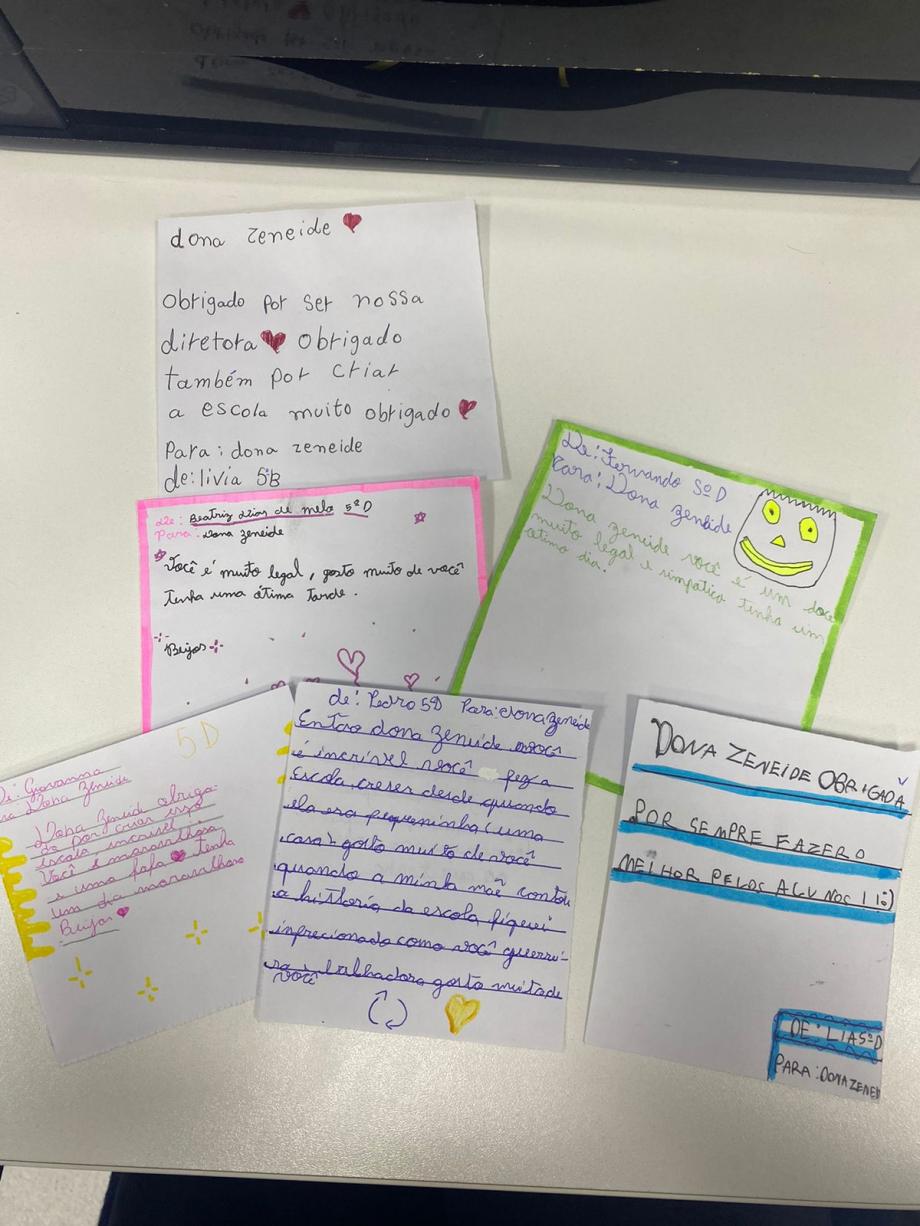 dona zeneide
Obrigado por ser nossa
diretora obrigado
também por criar
a escola muito obrigado
Para: dona zeneide
de: livia 5B
De: Beatriz dias de melo 5ºD
Para: dona zeneide
Você é muito legal, gosto muito de você
tenha uma otima tarde.
Beijos
De: Fernando 5º D
Para: Dona zeneide
Dona zeneide você é um doce
muito legal e simpatica tenha um
otimo dia.
5D
De: Giovanna
Dona Zeneide
Dona Zeneid obriga-
do por criar essa
escola incrivel
Você é maravilhosa
e uma fofa tenha
um dia maravilhoso
Beijos
de: Pedro 5D Para: dona zeneide
Então dona zeneide você
é incrivel você fez a
escola creser desde quando
ela era pequeninha (uma
casa) gosto muito de você
quando a minha mãe contou
a historia da escola fiquei
inprecionado como você guerrei-
ra
gosto muito de
você
DONA ZENEIDE OBRIGADA
POR SEMPRE FAZER O
MELHOR PELOS ALUNOS!! :)
DE: LIA 5º D
PARA: DONA ZENEID